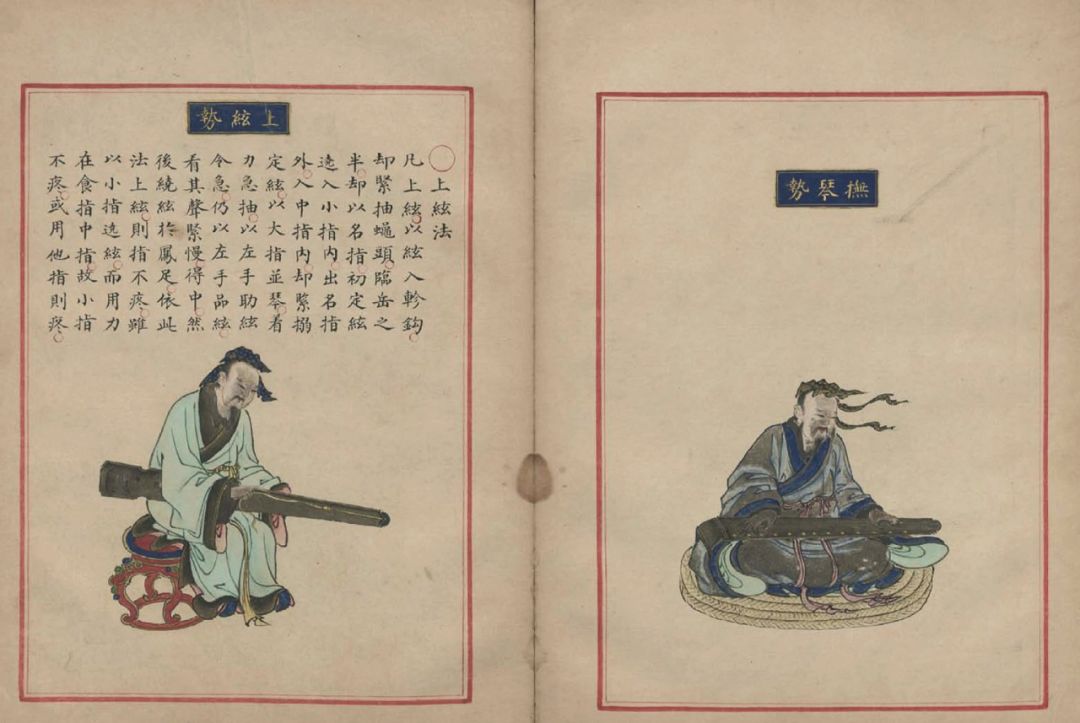 撫琴勢
上絃勢
○上絃法
凡上絃。以絃入軫鈎。
却緊抽蠅頭。臨岳之
半。却以名指。初定絃
遶入小指內出名指
外。入中指內。却緊搦
定絃。以大指並琴。着
力急抽。以左手助絃
令急。仍以左手品絃。
看其聲緊慢。得中。然
後繞絃於鳳足。依此
法上絃。則指不疼。雖
以小指遶絃。而用力
在食指中指。故小指
不疼。或用他指則疼。